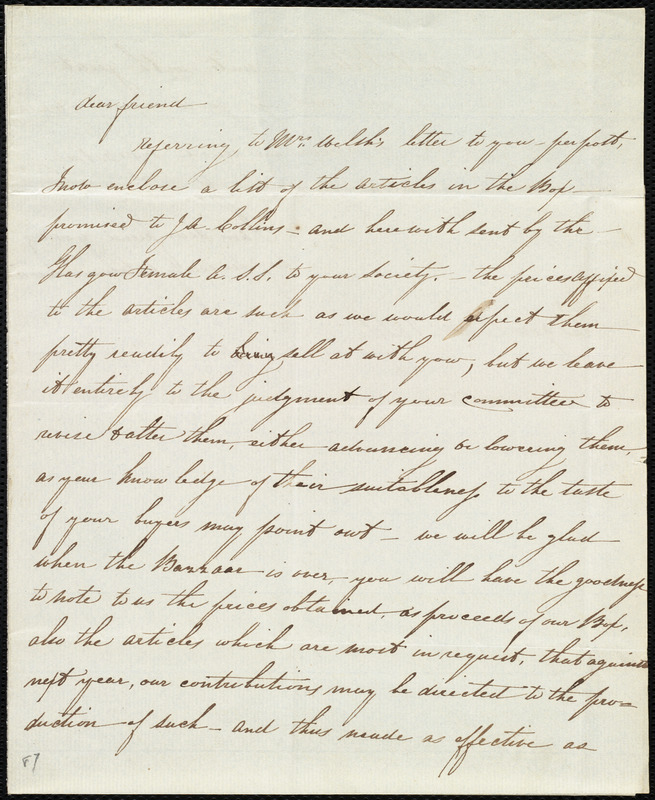 dear friend
referring to Mrs. Welsh's letter to you – per post,
I now enclose a list of the articles in the Box
promised to J A Collins – and herewith sent by the –
Glasgow Female A. S. S. to your society. – the prices affixed
to the articles are such as we would expect them
pretty readily to sell at with you, but we leave
it entirely to the judgment of your committee to
revise & alter them, either advancing or lowering them, –
as your knowledge of their suitableness to the taste
of your buyers may point out – we will be glad
when the Bazaar is over, – you will have the goodness
to note to us the prices obtained, as proceeds of our Box,
also the articles which are most in request, that against
next year, our contributions may be directed to the pro=
duction of such – and thus made as effective as
87